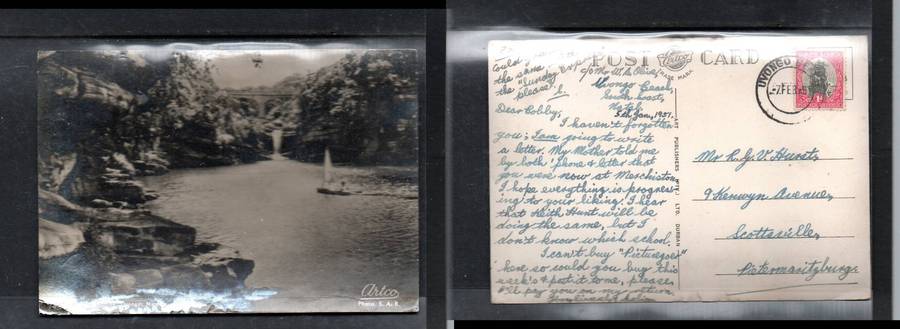 Artco
Photo. S. A. R.
POST CARD
Artco
TRADE MARK
could you
the same
the "Sunday Exp
please?
Uvongo Beach,
South Coast,
Natal.
5th Jan, 1951.
Dear Cobby,
I haven't forgotten
you; I am going to write
a letter. My Mother told me
by both 'phone & letter that
you were now at Merchiston.
I hope everything is progres-
ing to your liking. I hear
that Keith Hunt will be
doing the same, but I
don't know which school.
I can't buy "Picturegoer"
here so could you buy this
week's & post it to me, please
I'll pay you on my return
ART PUBLISHERS (PTY.) LTD. DURBAN
UVONGO
-7FEB
Mr R.G.V. Hurst,
9 Kenwyn Avenue,
Scottsville,
Pietermaritzburg.